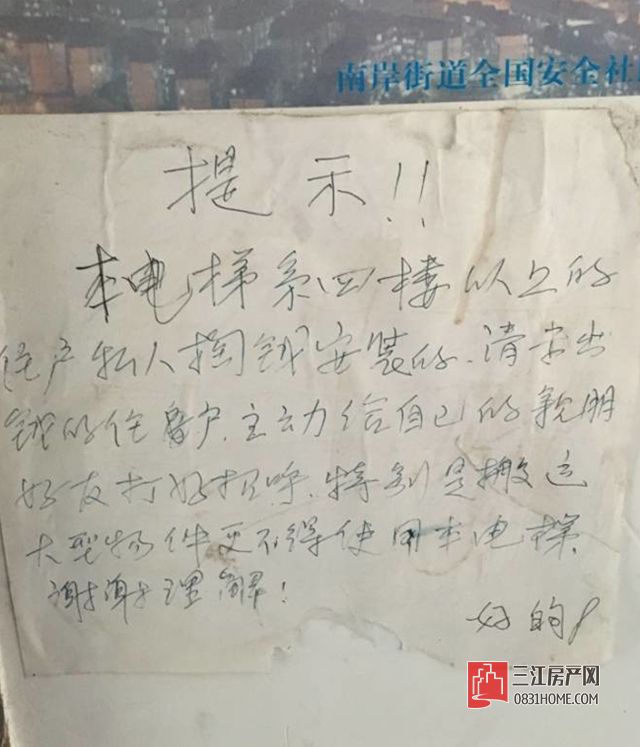 南岸街道全国安全社
提示!!
本电梯系四楼以上的
住户私人掏钱安装的.请未出
钱的住户.主动给自己的亲朋
好友打好招呼.特别是搬运
大型物件更不得使用本电梯.
谢谢理解!
好的
三江房产网
0831HOME.COM